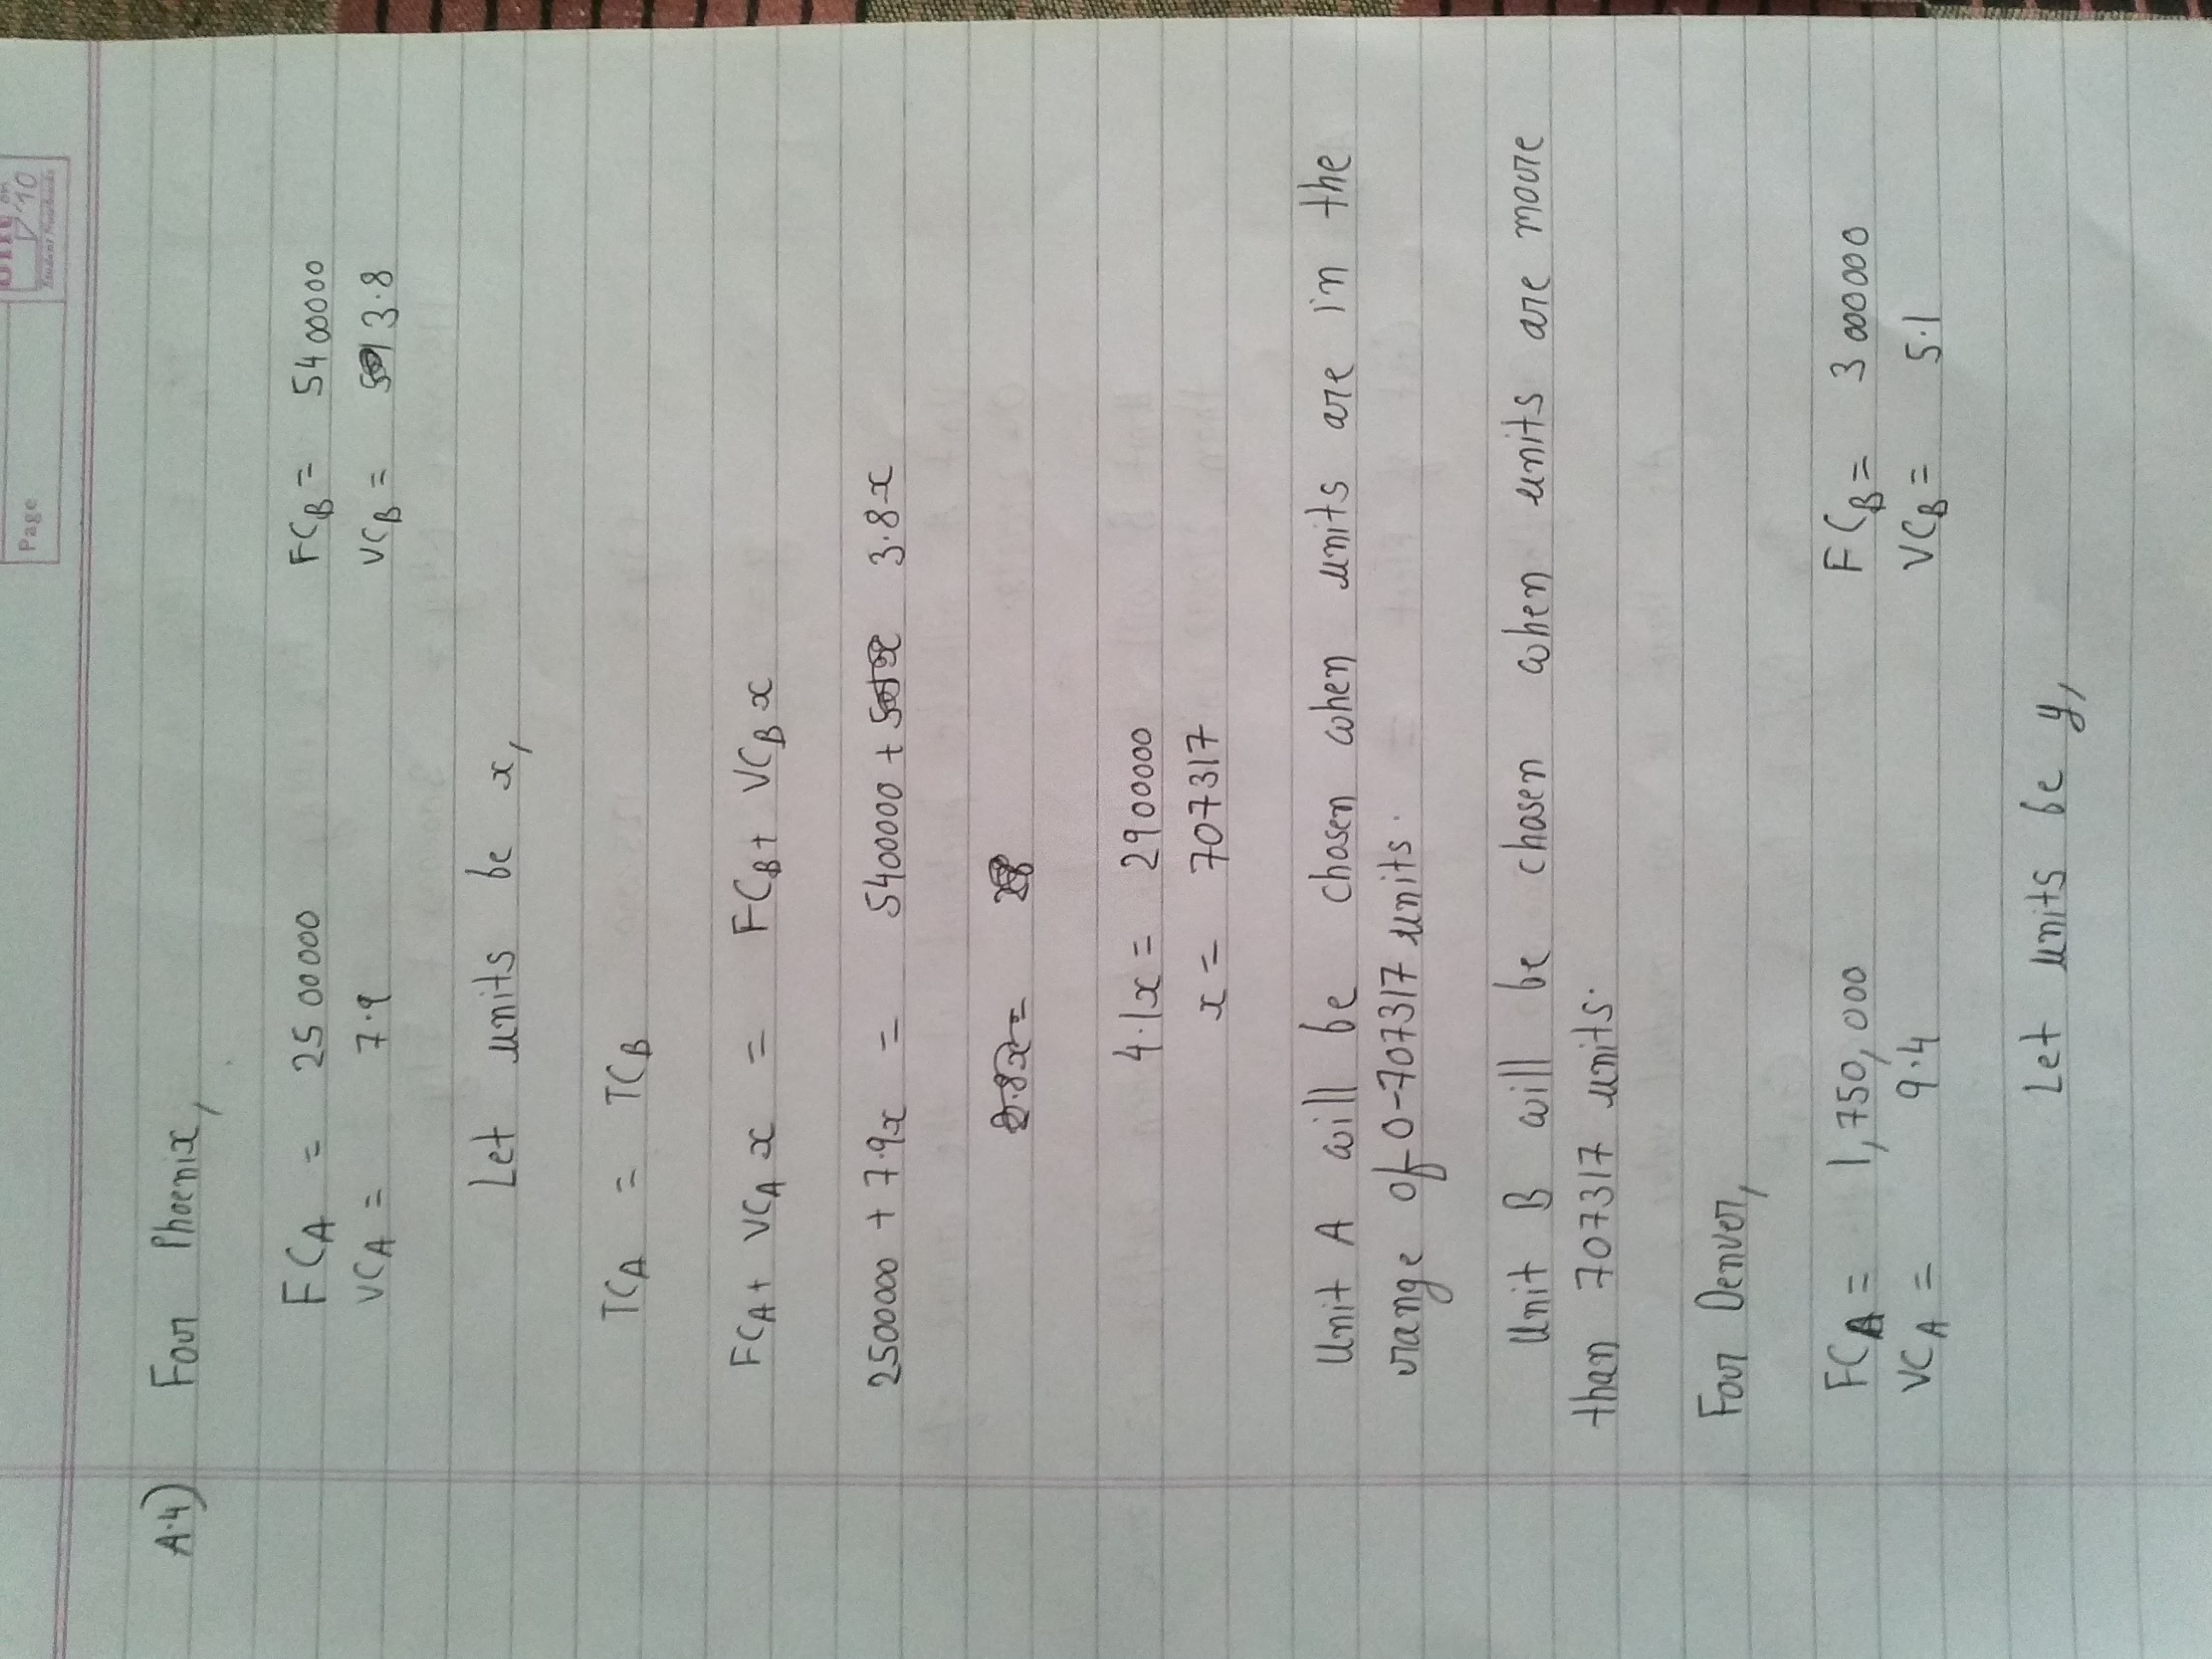 Page
A.4) For Phoenix,
FCA = 2500000 FCB = 5400000
VCA = 7.9 VCB = 3.8
Let units be x,
TCA = TCB
FCA + VCA x = FCB + VCB x
2500000 + 7.9x = 5400000 + 3.8x
4.1x = 2900000
x = 707317
Unit A will be chosen when units are in the
range of 0-707317 units.
Unit B will be chosen when units are more
than 707317 units.
For Denver,
FCA = 1,750,000 FCB = 3000000
VCA = 9.4 VCB = 5.1
Let units be y,